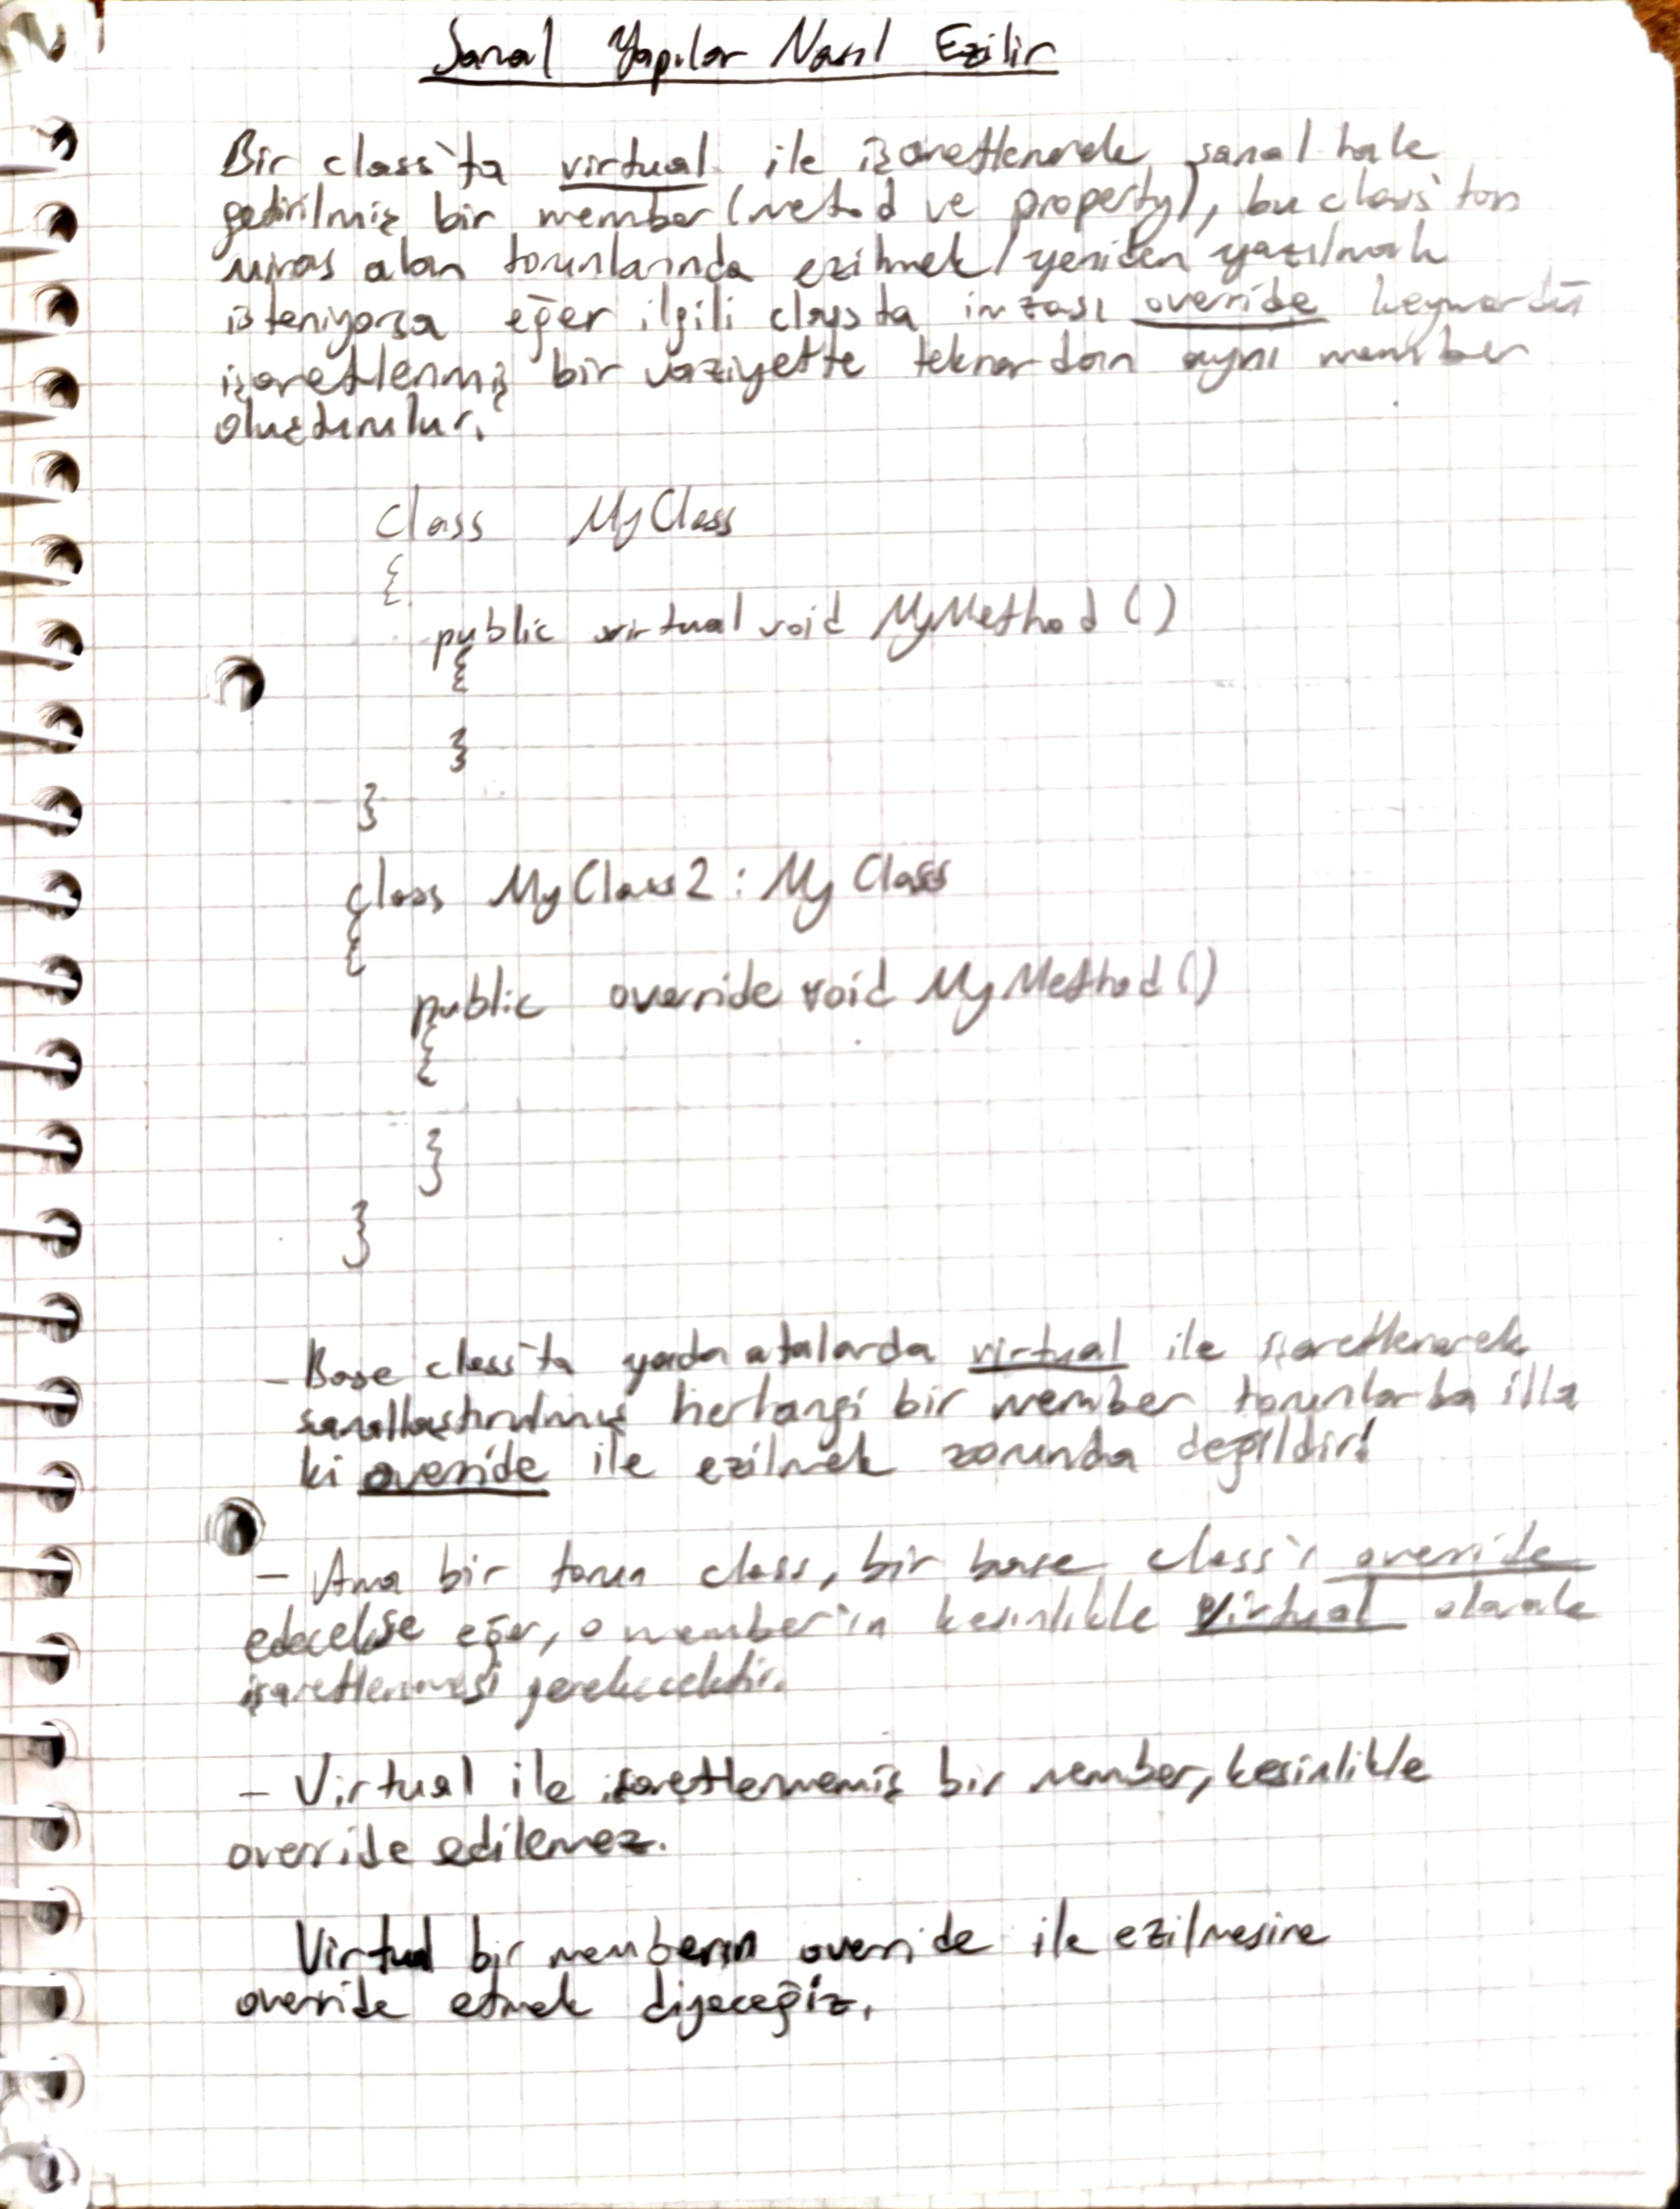 Sanal Yapılar Nasıl Ezilir
Bir class'ta virtual ile işaretlenerek sanal hale
getirilmiş bir member (metod ve property), bu class'tan
miras alan torunlarında ezilmek/yeniden yazılmak
isteniyorsa eğer ilgili classta imzası override keywordü
işaretlenmiş bir vaziyette tekrardan aynı member
oluşturulur.
class MyClass
{
public virtual void MyMethod ()
{
}
}
class MyClass2 : MyClass
{
public override void MyMethod ()
{
}
}
- Base class'ta yada atalarda virtual ile işaretlenerek
sanallaştırılmış herhangi bir member torunlarda illa
ki override ile ezilmek zorunda değildir!
- Ama bir torun class, bir base class'ı override
edecekse eğer, o member'ın kesinlikle virtual olarak
işaretlenmesi gerekecektir.
- Virtual ile işaretlenmemiş bir member, kesinlikle
override edilemez.
Virtual bir memberın override ile ezilmesine
override etmek diyeceğiz.